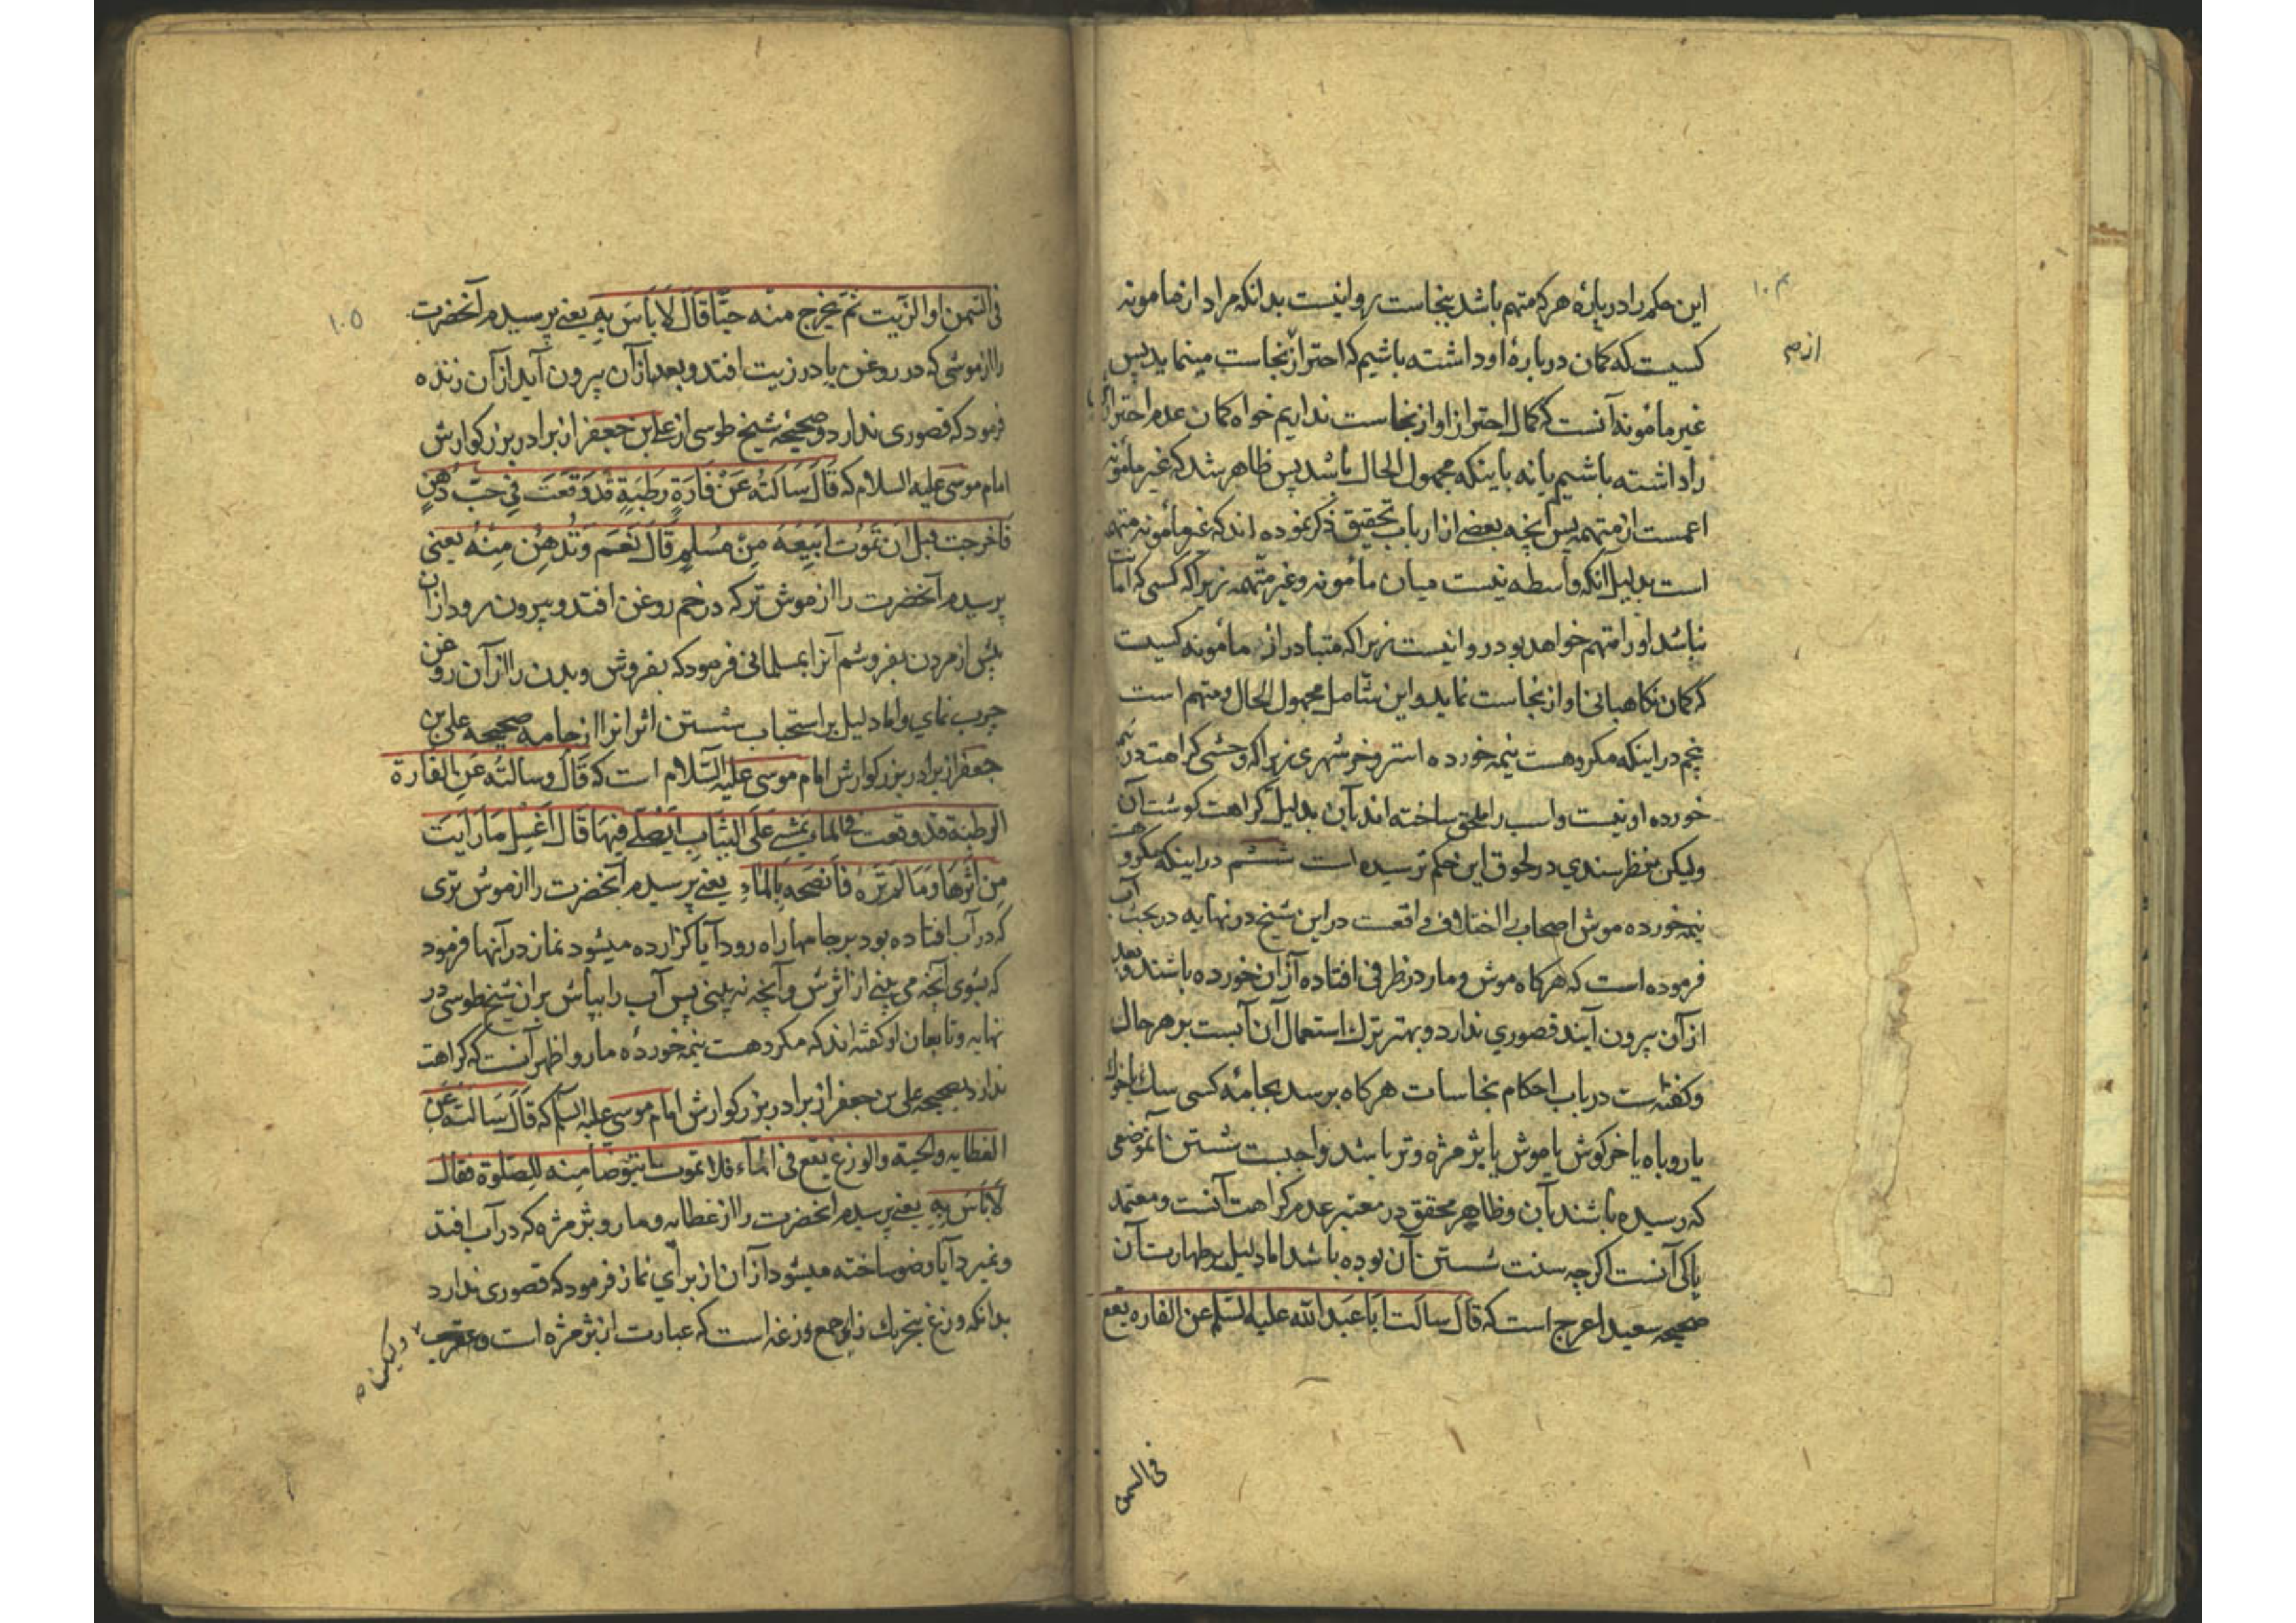 ۱۰۴
این حکم را درباره هرکه متهم باشد بنجاست روا نیست بدانکه مراد از مامونه
کسیت که کمان درباره او داشته باشیم که احتراز نجاست مینماید پس
از م
غیر مأمونه آنست که کمال احتراز او از نجاست نداریم خواه کمان عدم احتراز
را داشته باشیم یا نه باینکه مجهول الحال باشد پس ظاهر شد که غیر مأمونه
اعمست از متهمه پس آنچه بعضی از ارباب تحقیق ذکر نموده اند که غیر مأمونه متهمه
است بدلیل آنکه واسطه نیست میان مأمونه و غیر متهمه زیرا که کسی که امانت
نباشد او را متهم خواهد بود روا نیست زیرا که متبادر از مأمونه کسیت
که کمان نکاهبانی او از نجاست نماید و این شامل مجهول الحال و متهم است
پنجم در اینکه مکروهست نیمه خورده استر و خر شهری زیرا که وحشی کراهت در نیم
خورده او نیست و اسب را ملحق ساخته اند بآن بدلیل کراهت کوشت آن
ولیکن بنظر سندی در لحوق این حکم نرسیده است ششم در اینکه مکروهست
نیمه خورده موش اصحاب را اختلافی واقعست در این شیخ در نهایه در بحث آب
فرموده است که هرکاه موش و مار در ظرفی افتاده از آن خورده باشند و بعد
از آن بیرون آیند قصوری ندارد و بهتر ترک استعمال آن آبست بر هر حال
و کفته است در باب احکام نجاسات هرکاه برسد بجامه کسی سک یا خوک
یا روباه یا خرکوش یا موش یا بژمژه و تر باشد واجبست شستن آنموضعی
که رسیده باشند بآن و ظاهر محقق در معتبر عدم کراهت آنست و معتمد
پاکی آنست اکرچه سنت شستن آن بوده باشد اما دلیل بر طهارت آن
صحیحه سعید اعرج است که قال سالت ابا عبدالله علیه السلم عن الفاره یقع
فی السمن
۱۰۵
فی السمن او الزیت ثم یخرج منه حیّا قال لا بأس به یعنی پرسیدم آنحضرت
را از موشی که در روغن یا در زیت افتد و بعد از آن بیرون آید از آن زنده
فرمود که قصوری ندارد و صحیحه شیخ طوسی از علی بن جعفر از برادر بزرکوارش
امام موسی علیه السلام که قال سالته عن فارة رطبة قد وقعت فی حب دهن
فاخرجت قبل ان تموت ابیعه من مسلم قال نعم و تدهن منه یعنی
پرسیدم آنحضرت را از موش تر که در خم روغن افتد و بیرون رود از آن
پیش از مردن بفروشم آنرا بمسلمانی فرمود که بفروش و بدن را از آن روغن
چرب نمای و اما دلیل بر استحباب شستن اثر انرا از جامه صحیحه علی بن
جعفر از برادر بزرکوارش امام موسی علیه السّلام است که قال و سالته عن الفارة
الرطبة قد وقعت فی الماء یمشی علی الثیاب ایصلی فیها قال اغسل ما رایت
من اثرها و ما لم تره فانضحه بالماء یعنی پرسیدم آنحضرت را از موش تری
که در آب افتاده بود بر جامها راه رود آیا کزارده میشود نماز در آنها فرمود
که بشوی آنچه می بینی از اثرش و آنچه نه بینی پس آب را بپاش بر آن شیخ طوسی در
نهایه و تابعان او کفته اند که مکروهست نیمه خورده مار و اظهر آنست که کراهت
ندارد بصحیحه علی بن جعفر از برادر بزرکوارش امام موسی علیه السلم که قال سالته عن
العظایه و الحیة و الوزغ یقع فی الماء فلا تموت ایتوضا منه للصلوة فقال
لا باس به یعنی پرسیدم انحضرت را از عظایه و مار و بژمژه که در آب افتد
و نمیرد آیا وضو ساخته میشود از آن از برای نماز فرمود که قصوری ندارد
بدانکه وزغ بتحریک زای جمع وزغه است که عبارت از بژمژه است و عقرب
ولیکن